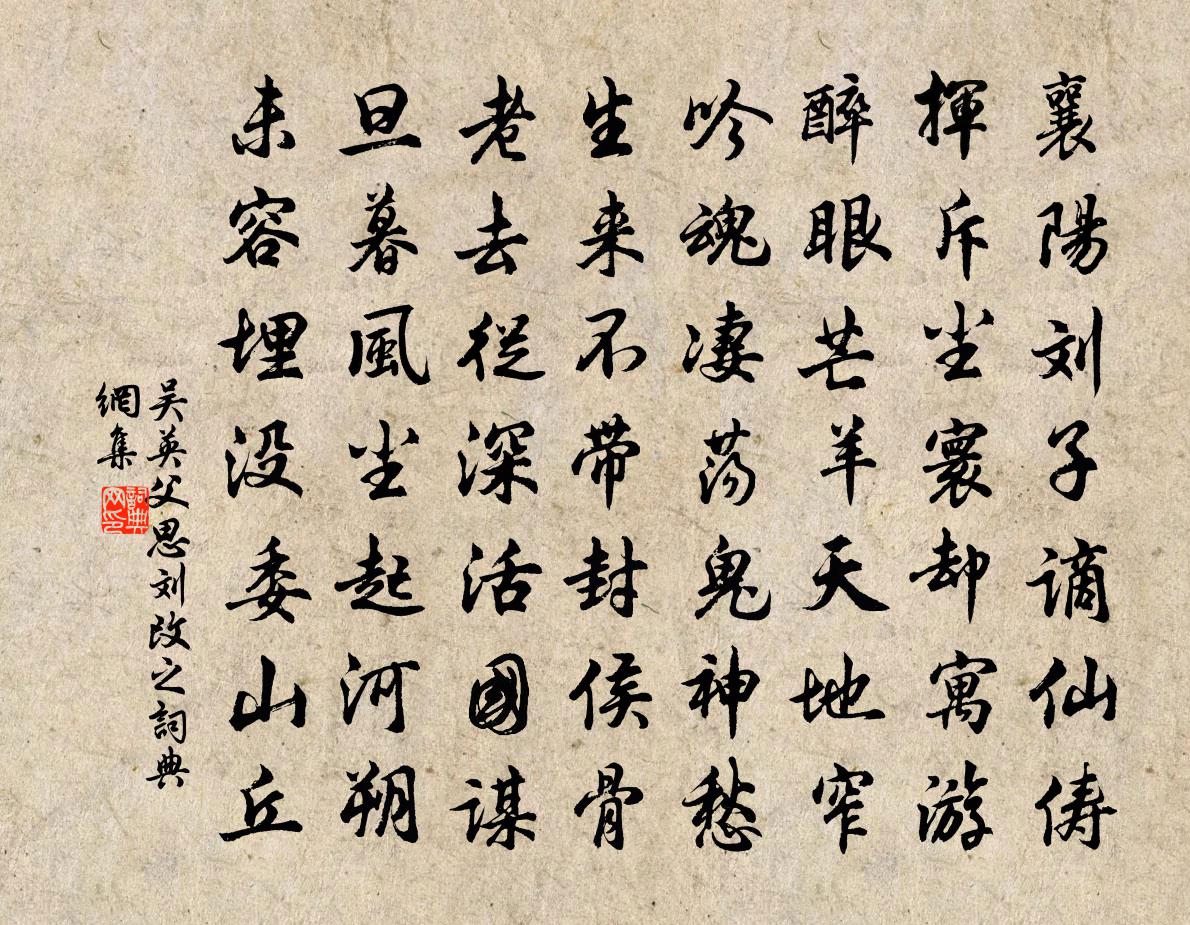 襄陽刘子谪仙俦
揮斥尘寰却寓游
醉眼芒羊天地窄
吟魂凄荡鬼神愁
生来不带封侯骨
老去從深活國谋
旦暮風尘起河朔
未容埋没委山丘
吴英父思刘改之詞典
網集
詞典
网印